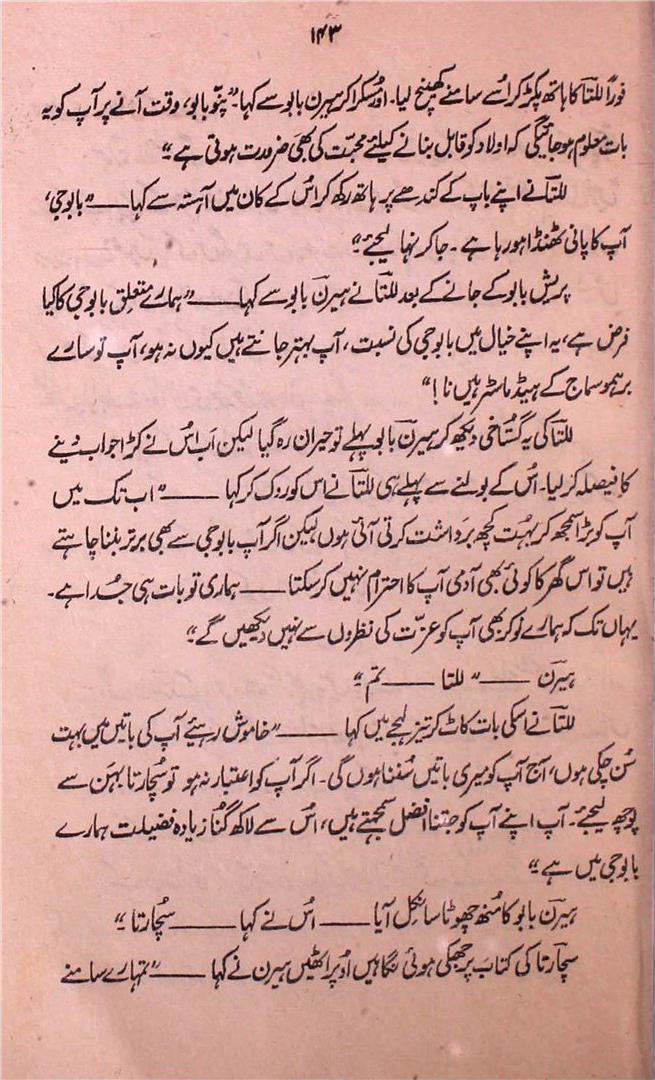 ۱۴۳
فوراً للتا کا ہاتھ پکڑ کر اُسے سامنے کھینچ لیا۔ اور مُسکرا کر ہیرن بابو سے کہا۔ "پنّو بابو، وقت آنے پر آپ کو یہ
بات معلوم ہو جائیگی کہ اولاد کو قابل بنانے کیلئے محبّت کی بھی ضرورت ہوتی ہے"۔
للتا نے اپنے باپ کے کندھے پر ہاتھ رکھ کر اُس کے کان میں آہستہ سے کہا ــــ "بابوجی،
آپ کا پانی ٹھنڈا ہو رہا ہے۔ جا کر نہا لیجئے"۔
پریش بابو کے جانے کے بعد للتا نے ہیرن بابو سے کہا ــــ "ہمارے متعلق بابوجی کا کیا
فرض ہے، یہ اپنے خیال میں بابوجی کی نسبت، آپ بہتر جانتے ہیں کیوں نہ ہو، آپ تو سارے
برہمو سماج کے ہیڈ ماسٹر ہیں نا!"
للتا کی یہ گستاخی دیکھ کر ہیرن بابو پہلے تو حیران رہ گیا لیکن اَب اُس نے کڑا جواب دینے
کا فیصلہ کر لیا۔ اُس کے بولنے سے پہلے ہی للتا نے اس کو روک کر کہا ــــ "اب تک میں
آپ کو بڑا سمجھ کر بہُت کچھ برداشت کرتی آئی ہوں لیکن اگر آپ بابوجی سے بھی برتر بننا چاہتے
ہیں تو اس گھر کا کوئی بھی آدمی آپ کا احترام نہیں کر سکتا ــــ ہماری تو بات ہی جُدا ہے۔
یہاں تک کہ ہمارے نوکر بھی آپ کو عزّت کی نظروں سے نہیں دیکھیں گے"۔
ہیرن ــــ "للتا ــــ تم"۔
للتا نے اسکی بات کاٹ کر تیز لہجے میں کہا ــــ "خاموش رہئیے آپ کی باتیں میں بہت
سُن چکی ہوں، آج آپ کو میری باتیں سُننا ہوں گی۔ اگر آپ کو اعتبار نہ ہو تو سُچارتا بہن سے
پوچھ لیجئے۔ آپ اپنے آپ کو جتنا افضل سمجھتے ہیں، اُس سے لاکھ گُنا زیادہ فضیلت ہمارے
بابوجی میں ہے"۔
ہیرن بابو کا منھ چھوٹا سا نکل آیا ــــ اُس نے کہا ــــ سُچارتا"۔
سچارتا کی کتاب پر جھکی ہوئی نگاہیں اُوپر اٹھیں ہیرن نے کہا ــــ "تمہارے سامنے